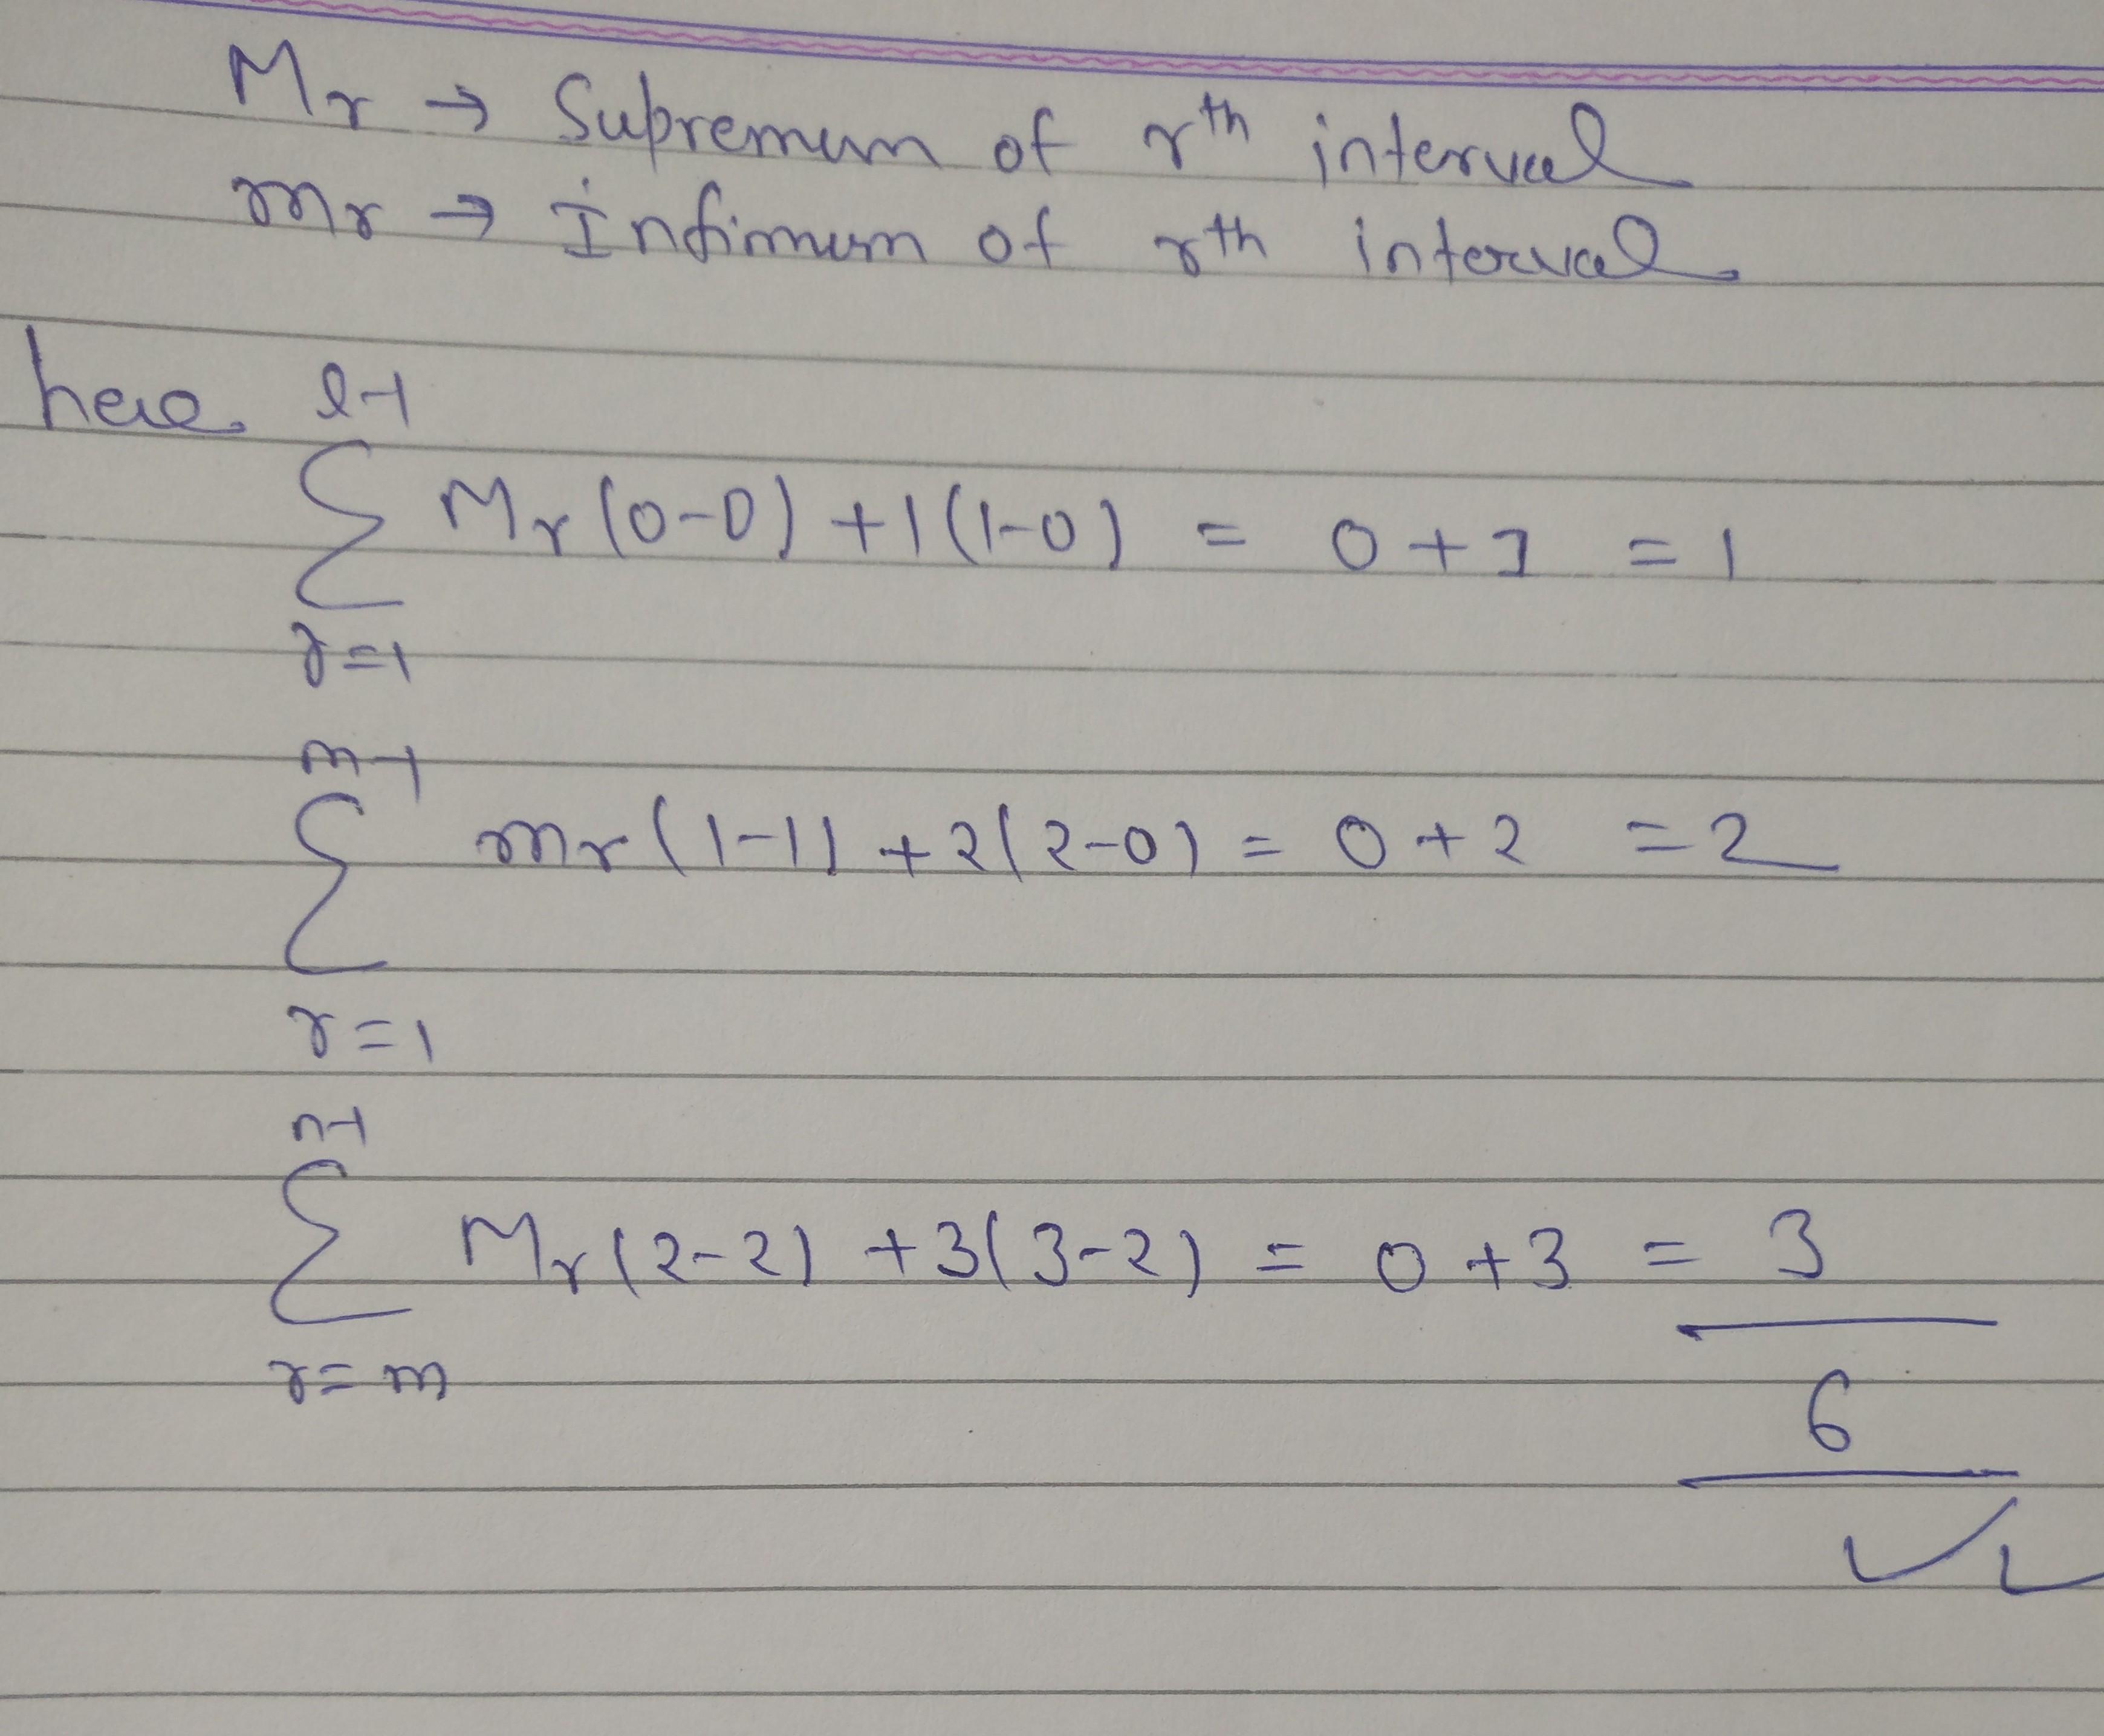 Mr → Supremum of rth interval
mr → Infimum of rth interval
here l-1
∑ Mr (0-0) +1(1-0) = 0+1 = 1
r=1
m-1
∑ mr (1-1) +2(2-0) = 0+2 = 2
r=1
n-1
∑ Mr (2-2) +3(3-2) = 0+3 = 3
r=m
6